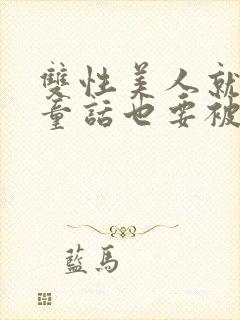 雙性美人就
童話也要被
藍馬